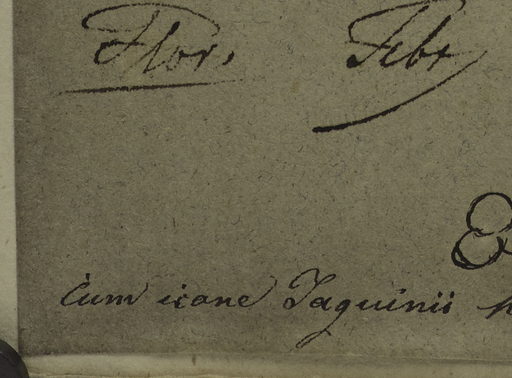 Flor. Febr
Cum icone Jaquinii